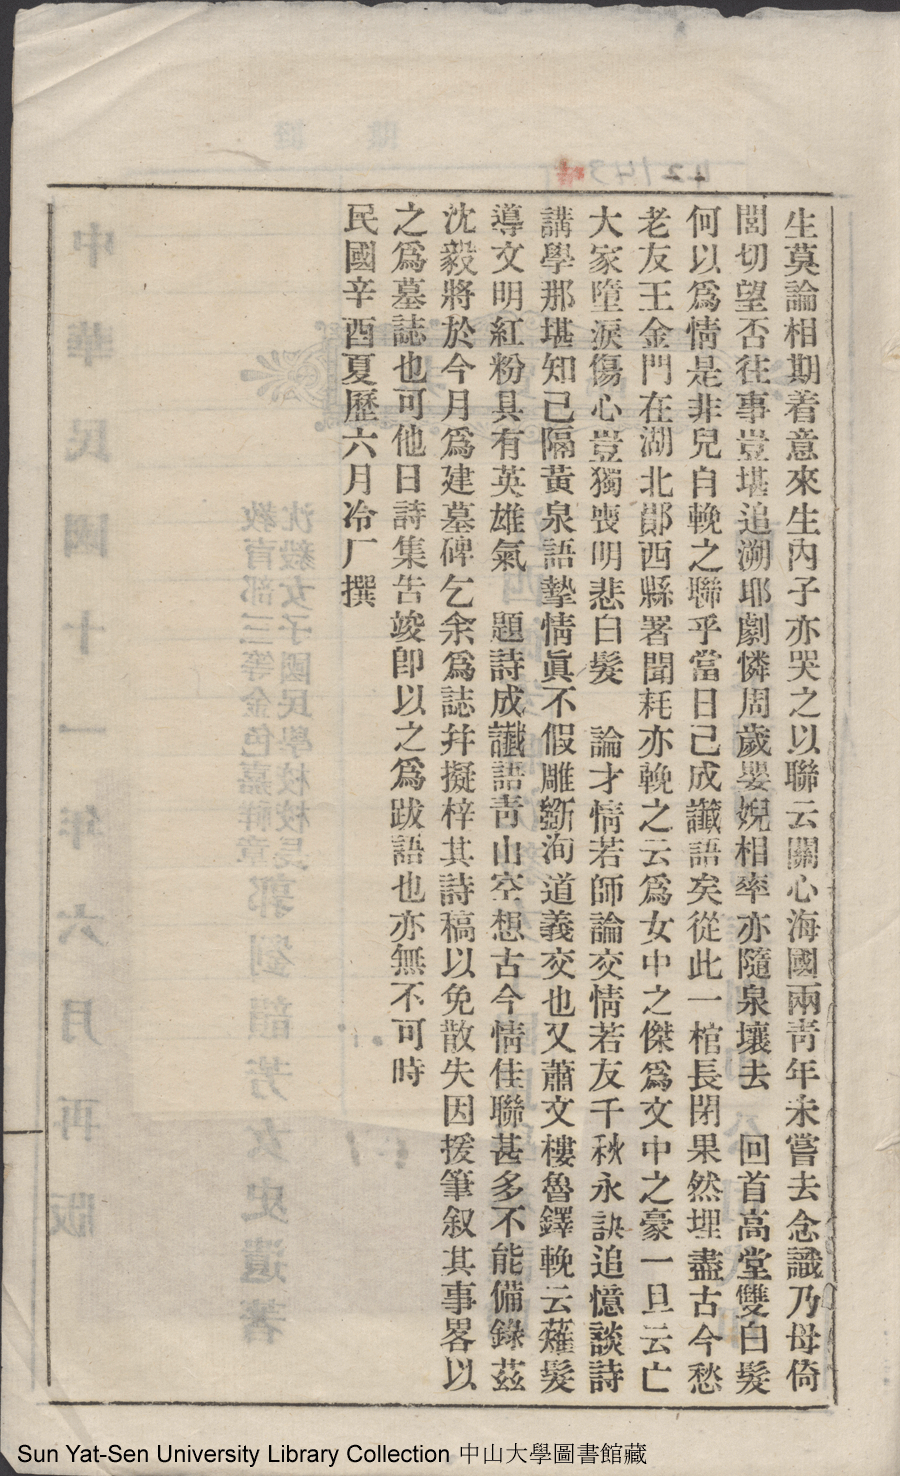 生莫論相期着意來生內子亦哭之以聯云關心海國兩靑年未嘗去念識乃母倚
閭切望否往事豈堪追溯耶劇憐周歲嬰婗相率亦隨泉壤去　回首高堂雙白髮
何以爲情是非兒自輓之聯乎當日已成讖語矣從此一棺長閉果然埋盡古今愁
老友王金門在湖北鄖西縣署聞耗亦輓之云爲女中之傑爲文中之豪一旦云亡
大家墮淚傷心豈獨喪明悲白髮　論才情若師論交情若友千秋永訣追憶談詩
講學那堪知己隔黃泉語摯情眞不假雕斵洵道義交也又蕭文樓魯鐸輓云薤髮
導文明紅粉具有英雄氣　題詩成讖語靑山空想古今情佳聯甚多不能備錄茲
沈毅將於今月爲建墓碑乞余爲誌幷擬梓其詩稿以免散失因援筆叙其事畧以
之爲墓誌也可他日詩集吿竣卽以之爲跋語也亦無不可時
民國辛酉夏歷六月冷厂撰
沈毅女子國民學校校長
敎育部三等金色嘉祥章
郭劉韻芳女史遺著
中華民國十一年六月再版
Sun Yat-Sen University Library Collection 中山大學圖書館藏